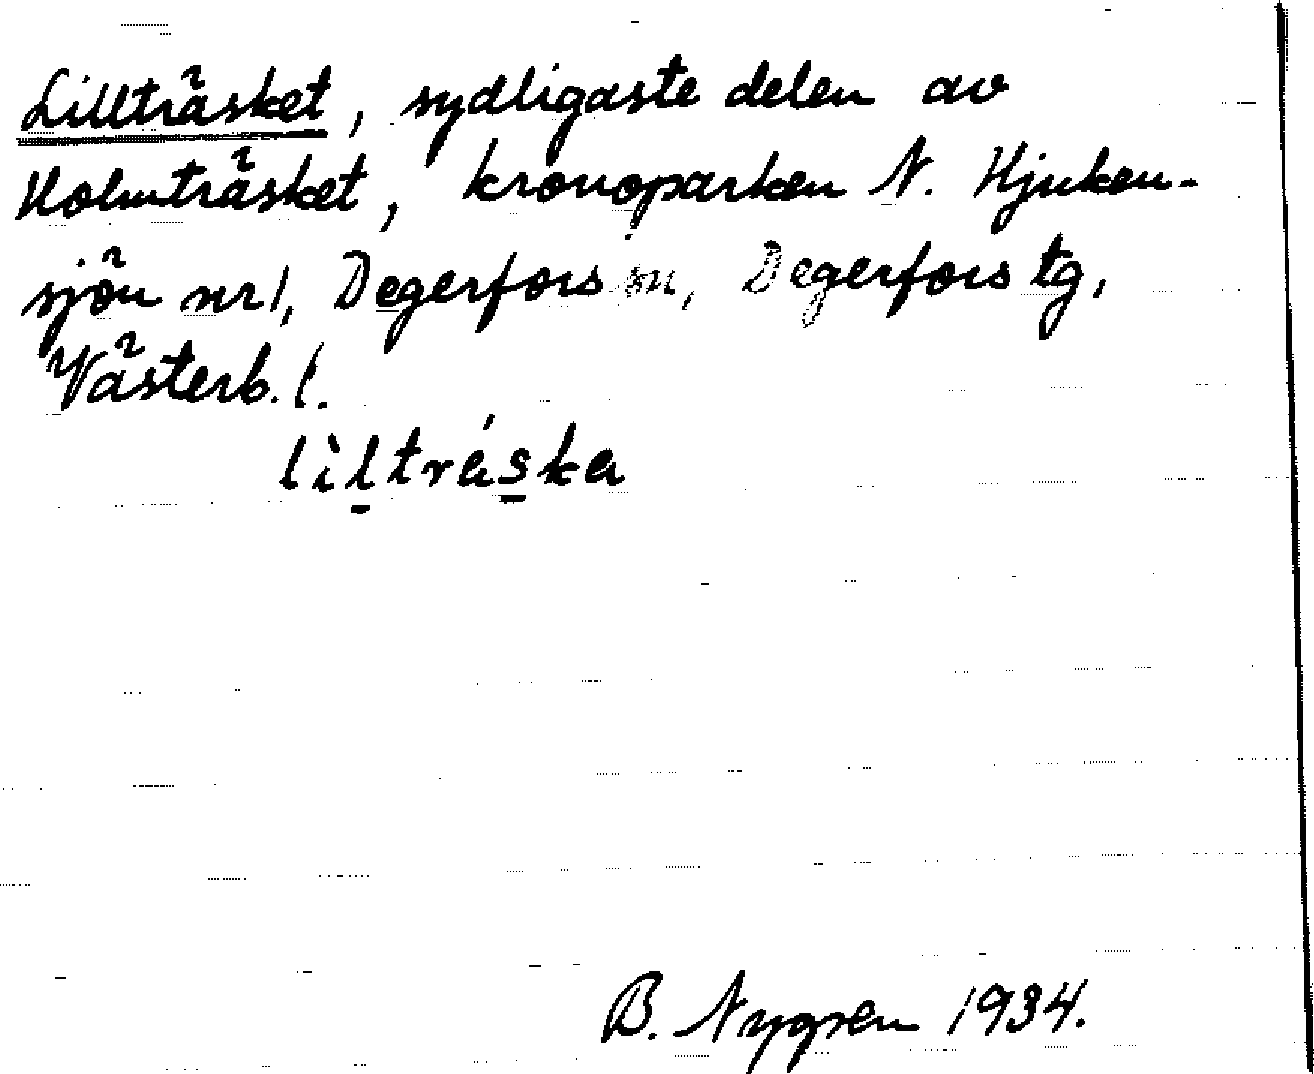 Lillträsket, sydligaste delen av
Holmträsket, kronoparken N. Hjuken-
sjön nr 1, Degerfors sn, Degerfors tg,
Västerb. l.
lìl̠trás̠ka
B. Nygren 1934.